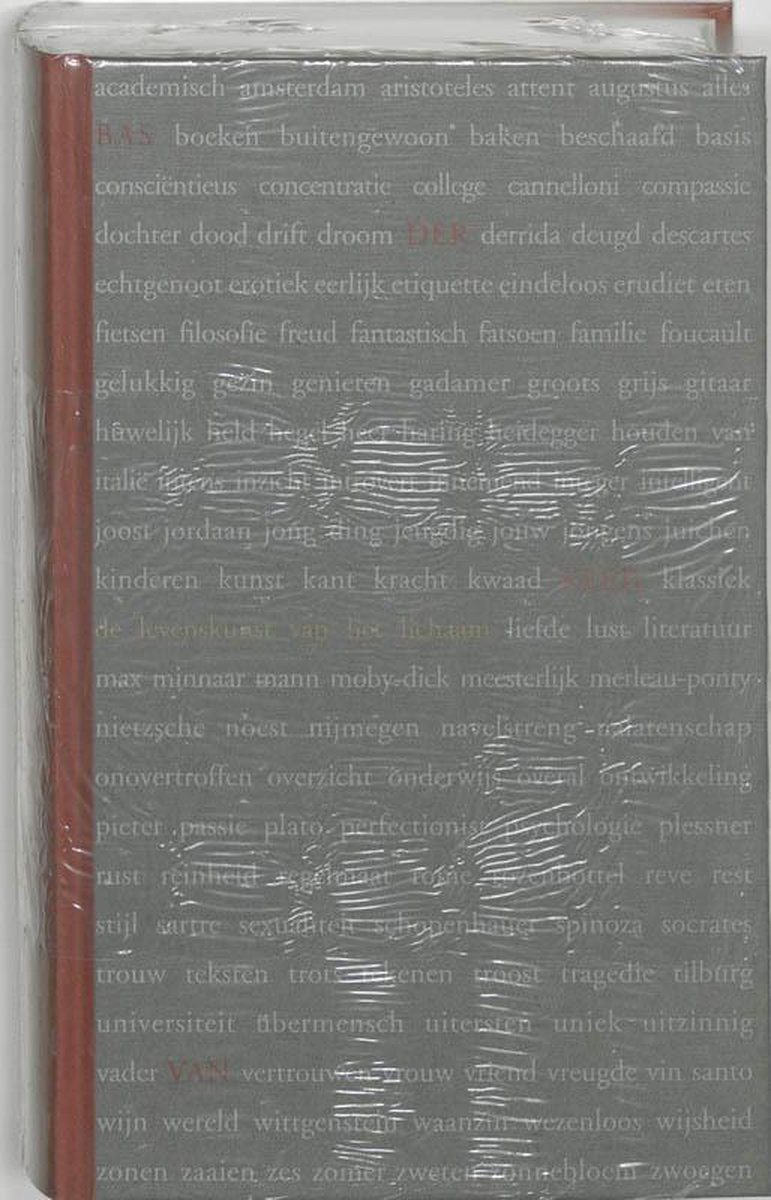 academisch amsterdam aristoteles attent augustus alles
BAS boeken buitengewoon baken beschaafd basis
consciëntieus concentratie college cannelloni compassie
dochter dood drift droom DER derrida deugd descartes
echtgenoot erotiek eerlijk etiquette eindeloos erudiet eten
fietsen filosofie freud fantastisch fatsoen familie foucault
gelukkig gezin genieten gadamer groots grijs gitaar
huwelijk held hegel heer haring heidegger houden van
italië intens inzicht introvert innemend integer intelligent
joost jordaan jong jeugdig jouw jongens juichen
kinderen kunst kant kracht kwaad klassiek
de levenskunst van het lichaam liefde lust literatuur
max minnaar mann moby-dick meesterlijk merleau-ponty
nietzsche noest nijmegen navelstreng nalatenschap
onovertroffen overzicht onderwijs overal ontwikkeling
pieter passie plato perfectionist psychologie plessner
rust reinheid regelmaat rome rozenbottel reve rest
stijl sartre sexualiteit schopenhauer spinoza socrates
trouw teksten trots tekenen troost tragedie tilburg
universiteit übermensch uitersten uniek uitzinnig
vader VAN vertrouwen vrouw vriend vreugde vin santo
wijn wereld wittgenstein waanzin wezenloos wijsheid
zonen zaaien zes zomer zweten zonnebloem zwoegen